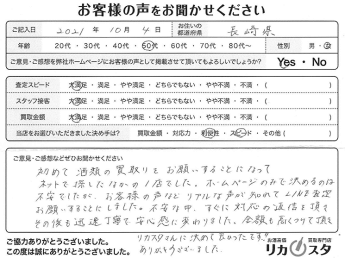 お客様の声をお聞かせください
ご記入日 2021 年 10 月 4 日 お住いの都道府県 長崎県
年齢 20代・30代・40代・50代・60代・70代・80代～ 性別 男・女
ご意見・ご感想を弊社ホームページにお客様の声として掲載させて頂いてもよろしいでしょうか? Yes・No
査定スピード 大満足・満足・やや満足・どちらでもない・やや不満・不満・( )
スタッフ接客 大満足・満足・やや満足・どちらでもない・やや不満・不満・( )
買取金額 大満足・満足・やや満足・どちらでもない・やや不満・不満・( )
当店をお選びいただきました決め手は? 買取金額・対応力・利便性・スピード・その他( )
ご意見・ご感想などぜひお聞かせください
初めて酒類の買取りをお願いすることになって
ネットで探したなかの1店でした。ホームページのみで決めるのは
不安でしたが、お客様の声などリアルな声が知れてLINE査定
お願いすることにしました。不安な中、すぐに対応の返信を頂き
その後も迅速丁寧で安心感に変わりました。金額も高くつけて頂き
リカスタさんに決めて良かったです!!
ありがとうございました。
ご協力ありがとうございました。
この度は誠にありがとうございました。
お酒高価買取専門店
リカスタ